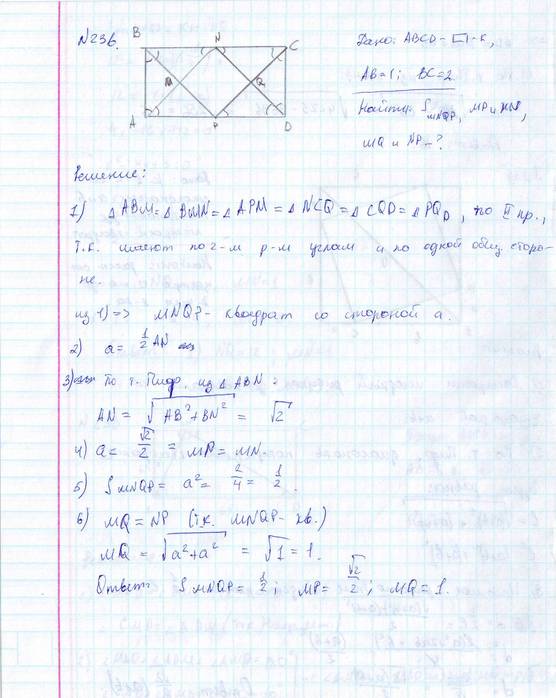 N236.
B N C
M Q
A P D
Дано: ABCD – □-к,
AB=1; BC=2
Найти: S MNQP, MP и MN,
MQ и NP – ?
Решение:
1) △ABM=△BMN=△APM=△NCQ=△CQD=△PQD, по II пр.,
т.к. имеют по 2-м р-м углам и по одной общ. сторо-
не.
из 1) => MNQP – квадрат со стороной a.
2) a = 1/2 AN
3) По т. Пифр. из △ABN:
AN = √(AB²+BN²) = √2
4) a = √2/2 = MP = MN.
5) S MNQP = a² = 2/4 = 1/2.
6) MQ = NP (т.к. MNQP – кв.)
MQ = √(a²+a²) = √1 = 1.
Ответ: S MNQP = 1/2; MP = √2/2; MQ = 1.